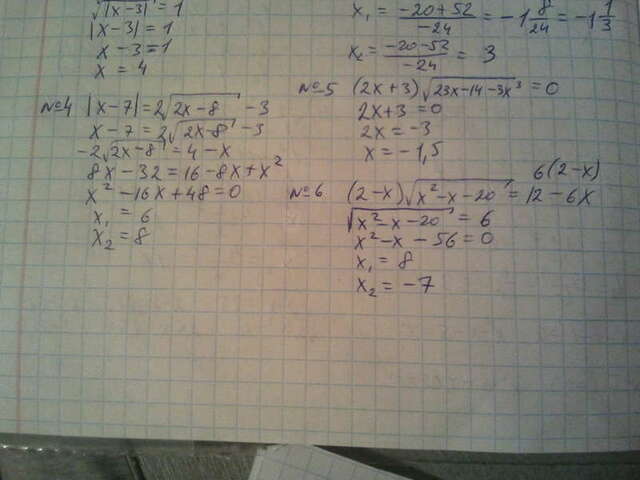 √|x-3| = 1
|x-3| = 1
x-3=1
x = 4
№4 |x-7|=2√2x-8 -3
x-7=2√2x-8 -3
-2√2x-8 = 4-x
8x-32=16-8x+x²
x²-16x+48=0
x₁ = 6
x₂ = 8
x₁ = -20+52/-24 = -1 8/24 = -1 1/3
x₂ = -20-52/-24 = 3
№5 (2x+3)√23x-14-3x³ = 0
2x+3=0
2x=-3
x=-1,5
6(2-x)
№6 (2-x)√x²-x-20 = 12-6x
√x²-x-20 = 6
x²-x-56=0
x₁ = 8
x₂ = -7